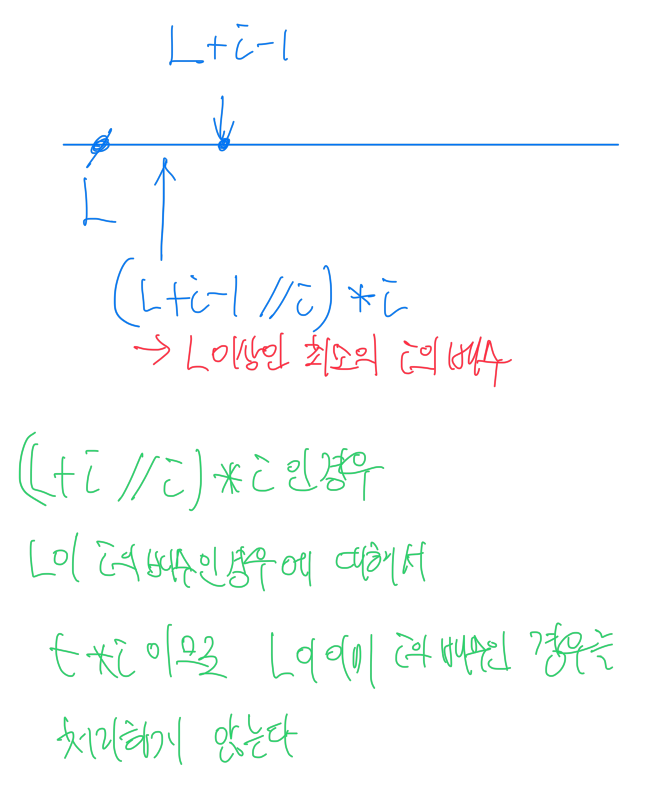 L+i-1
L
(L+i-1 // i) * i
→ L이상인 최소의 i의 배수
(L+i // i) * i 인경우
L이 i의 배수인경우에 대해서
t*i 이므로 L이 이미 i의 배수인 경우를
처리하지 않는다